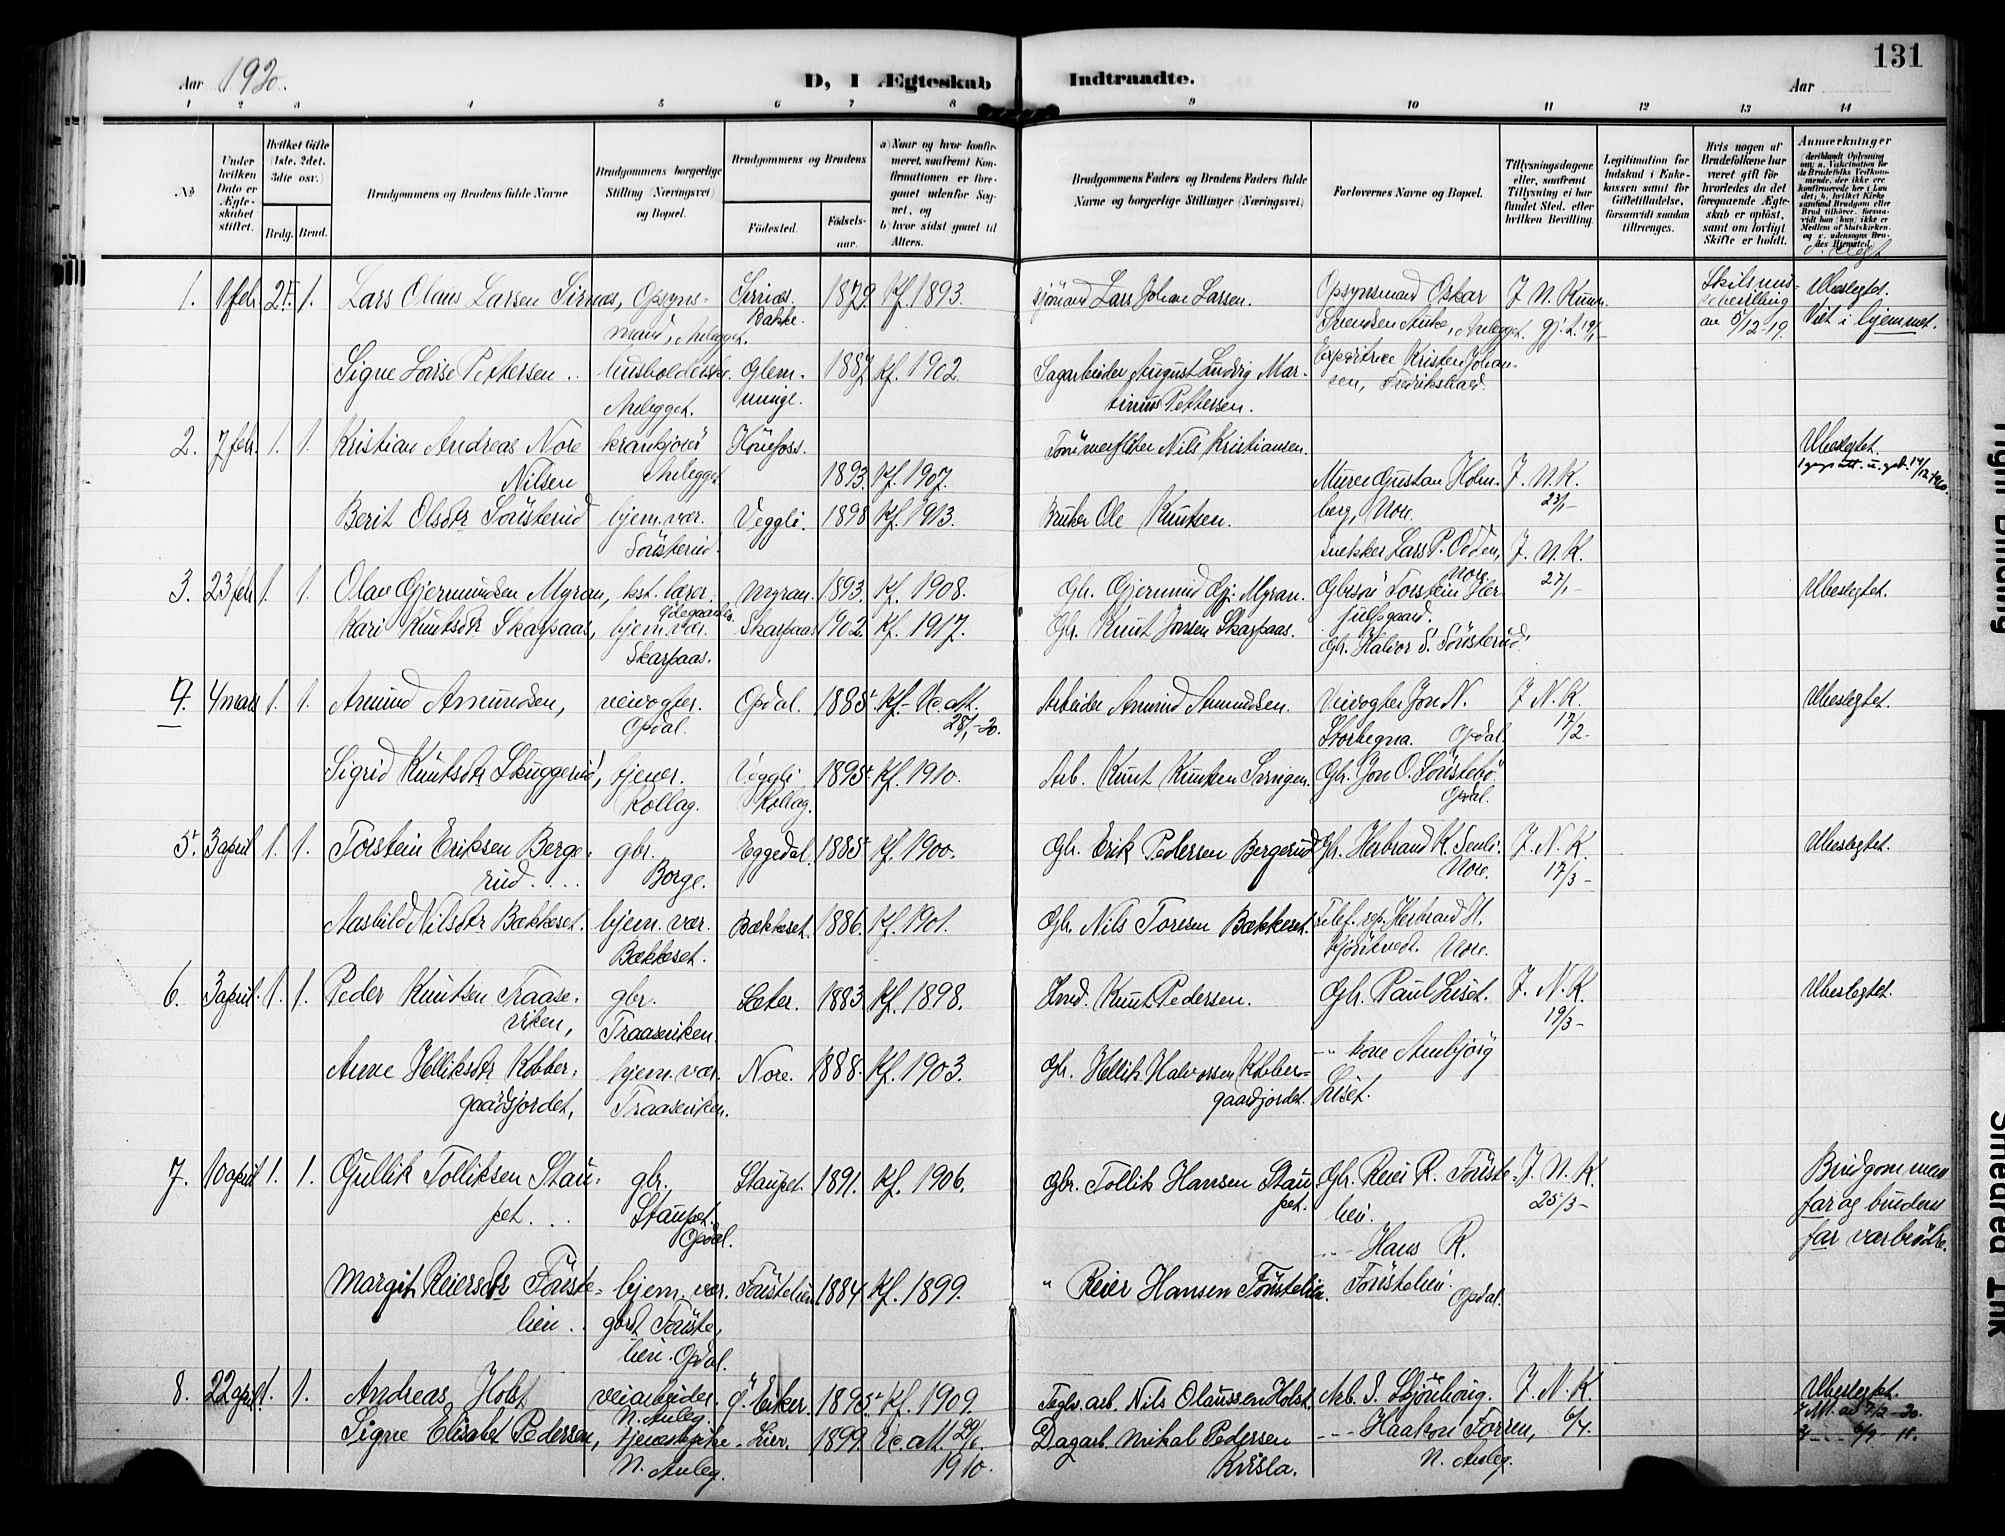 Aar 1920.
D, I Ægteskab Indtraadte.
131
Aar
1 2 3 4 5 6 7 8 9 10 11 12 13 14
No
Under hvilken Dato er Ægteskabet stiftet.
Hvilket Gifte (1ste, 2det, 3die osv.)
Brdg. Brud.
Brudgommens og Brudens fulde Navne
Brudgommens borgerlige Stilling (Næringsvei) og Bopæl.
Brudgommens og Brudens
Fødested. Fødselsaar.
a) Naar og hvor konfirmeret, saafremt Konfirmationen er foregaaet udenfor Sognet, og
b) hvor sidst gaaet til Alters.
Brudgommens Faders og Brudens Faders fulde Navne og borgerlige Stillinger (Næringsvei)
Forlovernes Navne og Bopæl.
Tillysningsdagene eller, saafremt Tillysning ei har fundet Sted, efter hvilken Bevilling.
Legitimation for Indskud i Enkekassen samt for Giftetilladelse, forsaavidt saadan tiltrænges.
Hvis nogen af Brudefolkene har været gift før hvorledes da det foregaaende Ægteskab er opløst, samt om lovligt Skifte er holdt.
Anmærkninger
1. 1 febr. 2 1. Lars Olaus Larsen Sirnæs, Opsynsmand, Anlegget. Sirnæs. Bakke. 1879. Kf. 1893. Sjömand Lars Johan Larsen. Opsynsmand Oskar Svendsen Auke, Anlegget. J. N. Kunn- gj. d. 19/1- Skilsmisse bevilling av 5/12-19. Ubeslegtet. Viet i hjemmet.
Signe Lovise Pettersen. husholderske. Anlegget. Glemminge. 1887 Kf. 1902. Sagarbeider August Ludvig Martinus Pettersen. Expeditrice Kristen Johansen, Fredrikshald.
2. 7 febr. 1. 1. Kristian Andreas Nore Nilsen krankjører Anlegget Hönefoss. 1893. Kf. 1907. Tømmerfløter Nils Kristiansen. Murer Gustav Holmberg, Nore. J. N. K. 23/1- Ubeslegtet.
Berit Olsdtr Söristerud hjem. vær. Sörsterud. Veggli. 1898 Kf. 1913. Bruker Ole Knutsen. Snekker Lars P. Odden, Nore.
3. 23 febr 1. 1. Olav Gjermundsen Myran, kst. lærer. Myran. 1893. Kf. 1908. Gbr. Gjermund Gj. Myran. Gbrsøn Torstein Herjulfsgaard. J. N. K. 27/1- Ubeslegtet.
Kari Knutsdtr Skarpaas, hjem. vær. Skarpaas. Skarpaas 1902. Kf. 1917. Gbr. Knut Jonsen Skarpaas. Gbr. Halvor S. Sörsterud.
4. 4 mars 1. 1. Amund Amundsen, veivogter. Opdal. Opdal. 1885. Kf. - Vc. att. 28/1-20. Arbeider Amund Amundsen. Veivogter Jon N. Storbegna. Opdal. J. N. K. 17/2- Ubeslegtet.
Sigrid Knutsdtr Skuggerud, tjener. Rollag. Veggli Rollag. 1895. Kf. 1910. Arb. Knut Knutsen Svingen. Gbr. Jon O. Söristebö Opdal.
5. 3 april 1. 1. Torstein Eriksen Bergerud. gbr. Borge. Eggedal. 1885. Kf. 1900. Gbr. Erik Pedersen Bergerud Gbr. Herbrand K. Senli. Nore. J. N. K. 17/3- Ubeslegtet.
Aashild Nilsdtr Bækkeset. hjem. vær. Bækkeset. Bækkeset. 1886. Kf. 1901. Gbr. Nils Toresen Bækkeset. Telef. rep. Herbrand H. Skjöntvedt. Nore.
6. 3 april. 1. 1. Peder Knutsen Traaseviken, gbr. Traaseviken. Sæter. 1883 Kf. 1898. Inds. Knut Pedersen. Gbr. Paul Liset. J. N. K. 19/3- Ubeslegtet.
Anne Helliksdtr Kobbergaardsjordet, hjem. vær. Traaseviken. Nore. 1888. Kf. 1903. Gbr. Hellik Halvorsen Kobbergaardjordet. - " - kone Ambjörg Liset.
7. 10 april 1. 1. Gullik Tolliksen Staupet. gbr. Staupet. Opdal. Staupet. 1891. Kf. 1906. Gbr. Tollik Hansen Staupet. Gbr. Reier R. Töristelien. J. N. K. 25/3- Brudgommens far og brudens far var brödre.
Margit Reiersdtr Töristelien. hjem. vær. Töristelien. Opdal. Töristelien 1884 Kf. 1899. " Reier Hansen Töristelien. - " - Hans R. Töristelien. Opdal.
8. 22 april 1. 1. Andreas Holst veiarbeider. N. Anleg. Ö. Eiker. 1895. Kf. 1909. Teglv. arb. Nils Olaussen Holst. Arb. I. Skjönhaug. J. N. K. 6/4. Ubeslegtet.
Signe Elisabet Pedersen, tjenestepike N. Anleg. Lier. 1899. Vc. att. 29/6. 1910. Dagarb. Mikal Pedersen Kvisla. - " - Haakon Torren, N. Anleg.